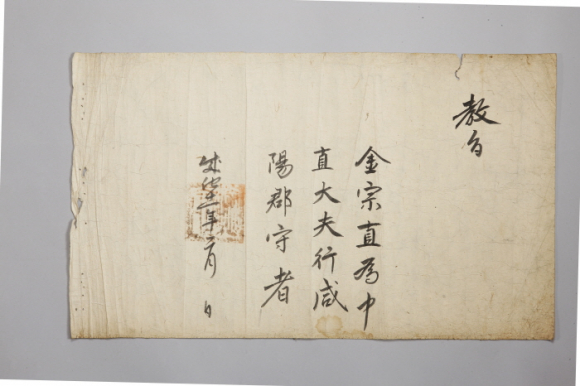 教旨
金宗直爲中
直大夫行咸
陽郡守者
成化 年 月 日